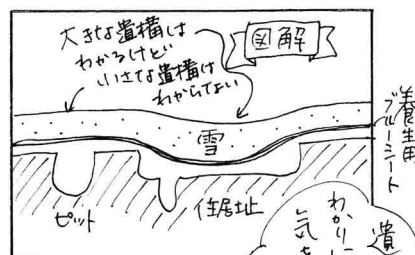 図解
大きな遺構は
わかるけど
小さな遺構は
わからない
雪
養生用
ブルーシート
ピット
住居址
遺
わかりに
気を